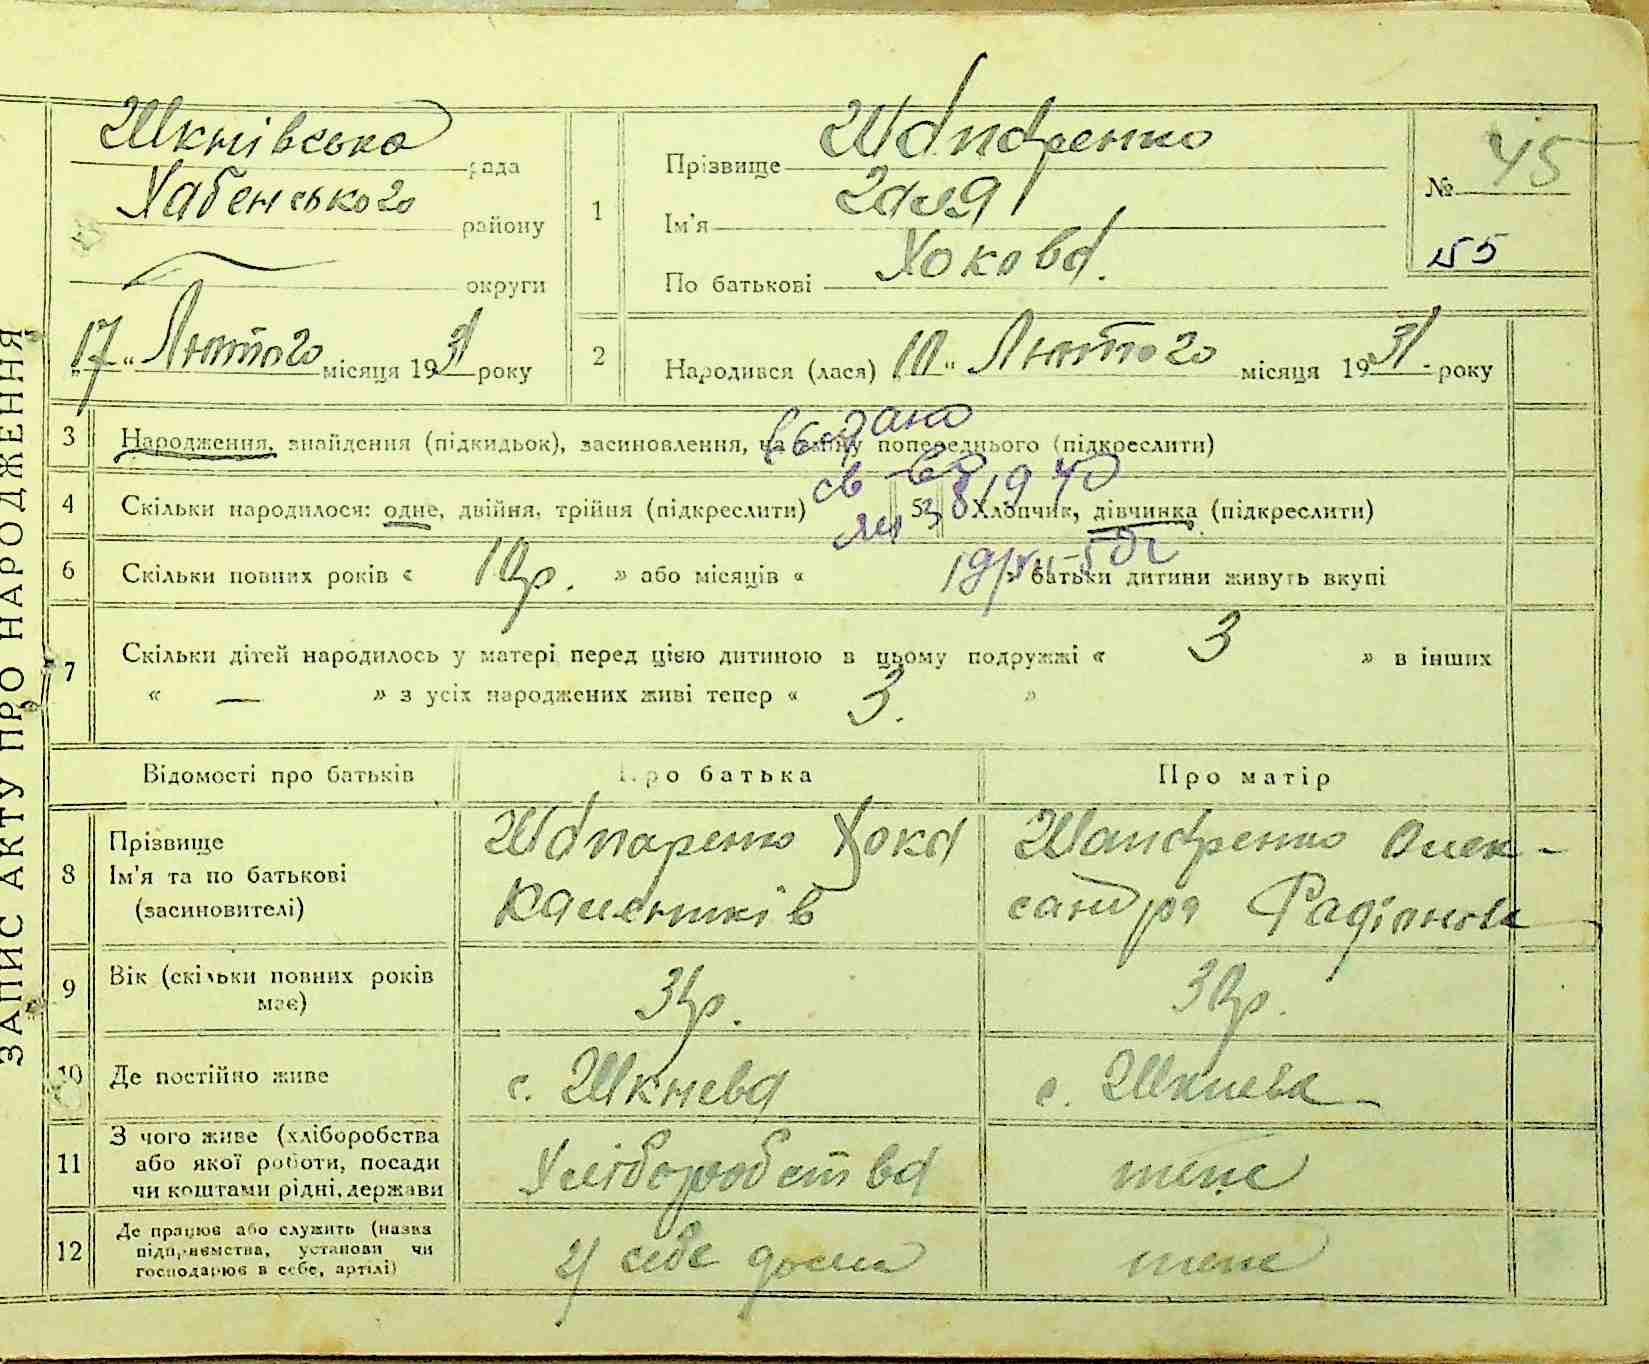 ЗАПИС АКТУ ПРО НАРОДЖЕННЯ
Шкнівська рада
Хабенського району
округи
„17“ Лютого місяця 1931 року
1
Прізвище Шапаренко
Ім'я Галя
По батькові Хокова.
№ 45
55
2
Народився (лася) „10“ Лютого місяця 1931 року
3 Народження, знайдення (підкидьок), засиновлення, на зміну попереднього (підкреслити)
видано
св-во
4 Скільки народилося: одне, двійня, трійня (підкреслити) 5 Хлопчик, дівчинка (підкреслити)
6 Скільки повних років « 10р. » або місяців « » батьки дитини живуть вкупі
7 Скільки дітей народилось у матері перед цією дитиною в цьому подружжі « 3 » в інших
« — » з усіх народжених живі тепер « 3. »
Відомості про батьків Про батька Про матір
8 Прізвище
Ім'я та по батькові
(засиновителі)
Шапаренко Хока
Шапаренко Олек-
сандра Радіонова
9 Вік (скільки повних років
має)
р.
р.
10 Де постійно живе с. Шкнева с. Шкнева
11 З чого живе (хліборобства
або якої роботи, посади
чи коштами рідні, держави
Хліборобства теж
12 Де працює або служить (назва
підприємства, установи чи
господарює в себе, артілі)
У себе дома теж